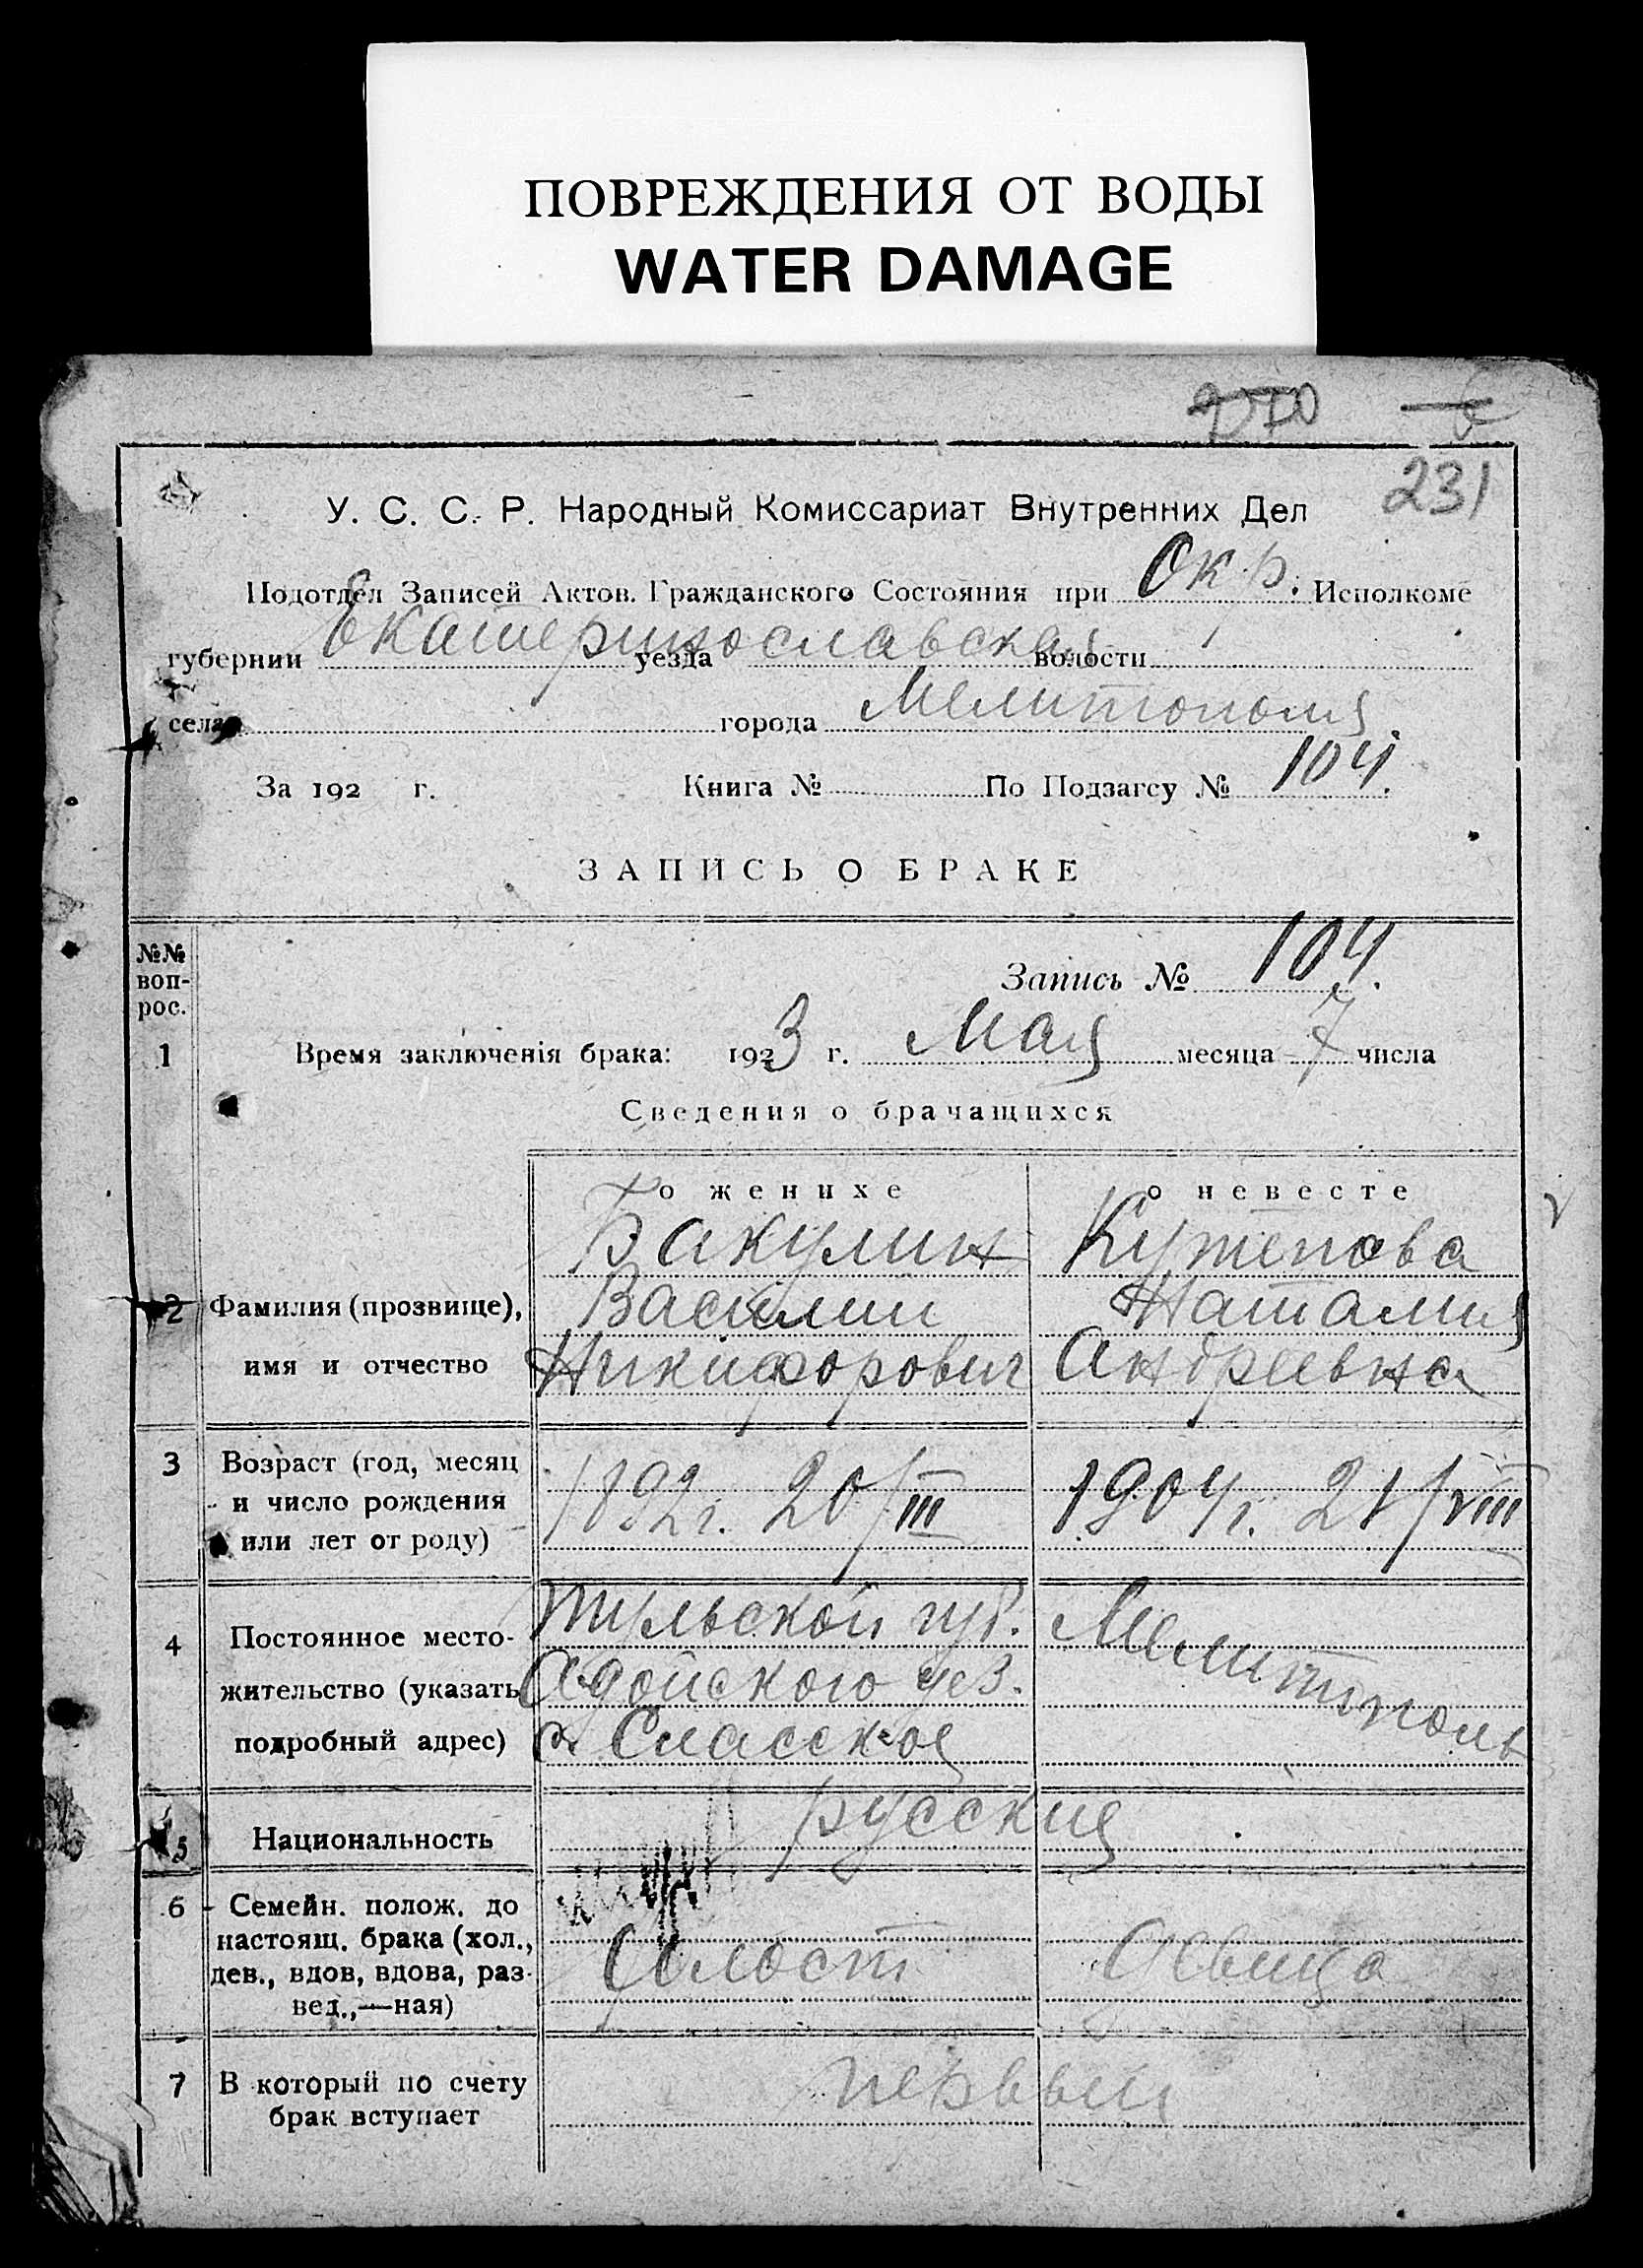 ПОВРЕЖДЕНИЯ ОТ ВОДЫ
WATER DAMAGE
231
У. С. С. Р. Народный Комиссариат Внутренних Дел
Подотдел Записей Актов Гражданского Состояния при Окр. Исполкоме
губернии Екатеринославская уезда волости
села города Мелитополя
За 192 г. Книга № По Подзагсу № 104.
ЗАПИСЬ О БРАКЕ
№№
воп-
рос.
Запись № 104.
1 Время заключенія брака: 1923 г. Мая месяца 7 числа
Сведения о брачащихся
о женихе о невесте
Бакулин Кутепова
2 Фамилия (прозвище), Василий Наталия
имя и отчество Никифорович Андреевна
3 Возраст (год, месяц
и число рождения 1892 г. 20/III 1904 г. 21/VIII
или лет от роду)
Тульской губ. Мелитополь
4 Постоянное место-
жительство (указать уез.
подробный адрес) с. Спасское
5 Национальность русския
6 Семейн. полож. до
настоящ. брака (хол.,
дев., вдов, вдова, раз-
вед.,—ная) Холост девица
7 В который по счету первый
брак вступает